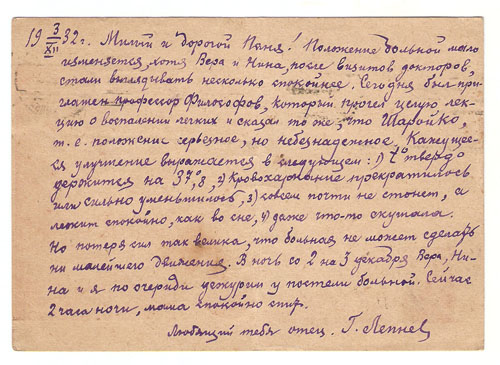 19 3/XII 32 г. Милый и дорогой Ноня! Положение больной мало
изменяется, хотя Вера и Нина, после визитов докторов,
стали выглядывать несколько спокойнее. Сегодня был при-
глашен профессор Философов, который прочел целую лек-
цию о воспалении легких и сказал то же, что Шаройко,
т.е. положение серьезное, но небезнадежное. Кажущее-
ся улучшение выражается в следующем: 1) t° твердо
держится на 37°,8, 2) Кровохаркание прекратилось
или сильно уменьшилось, 3) совсем почти не стонет, а
лежит спокойно, как во сне, 4) даже что-то скушала.
Но потеря сил так велика, что больная не может сделать
ни малейшего движения. В ночь со 2 на 3 декабря Вера, Ни-
на и я по очереди дежурили у постели больной. Сейчас
2 часа ночи, мама спокойно спит.
Любящий тебя отец. Г.